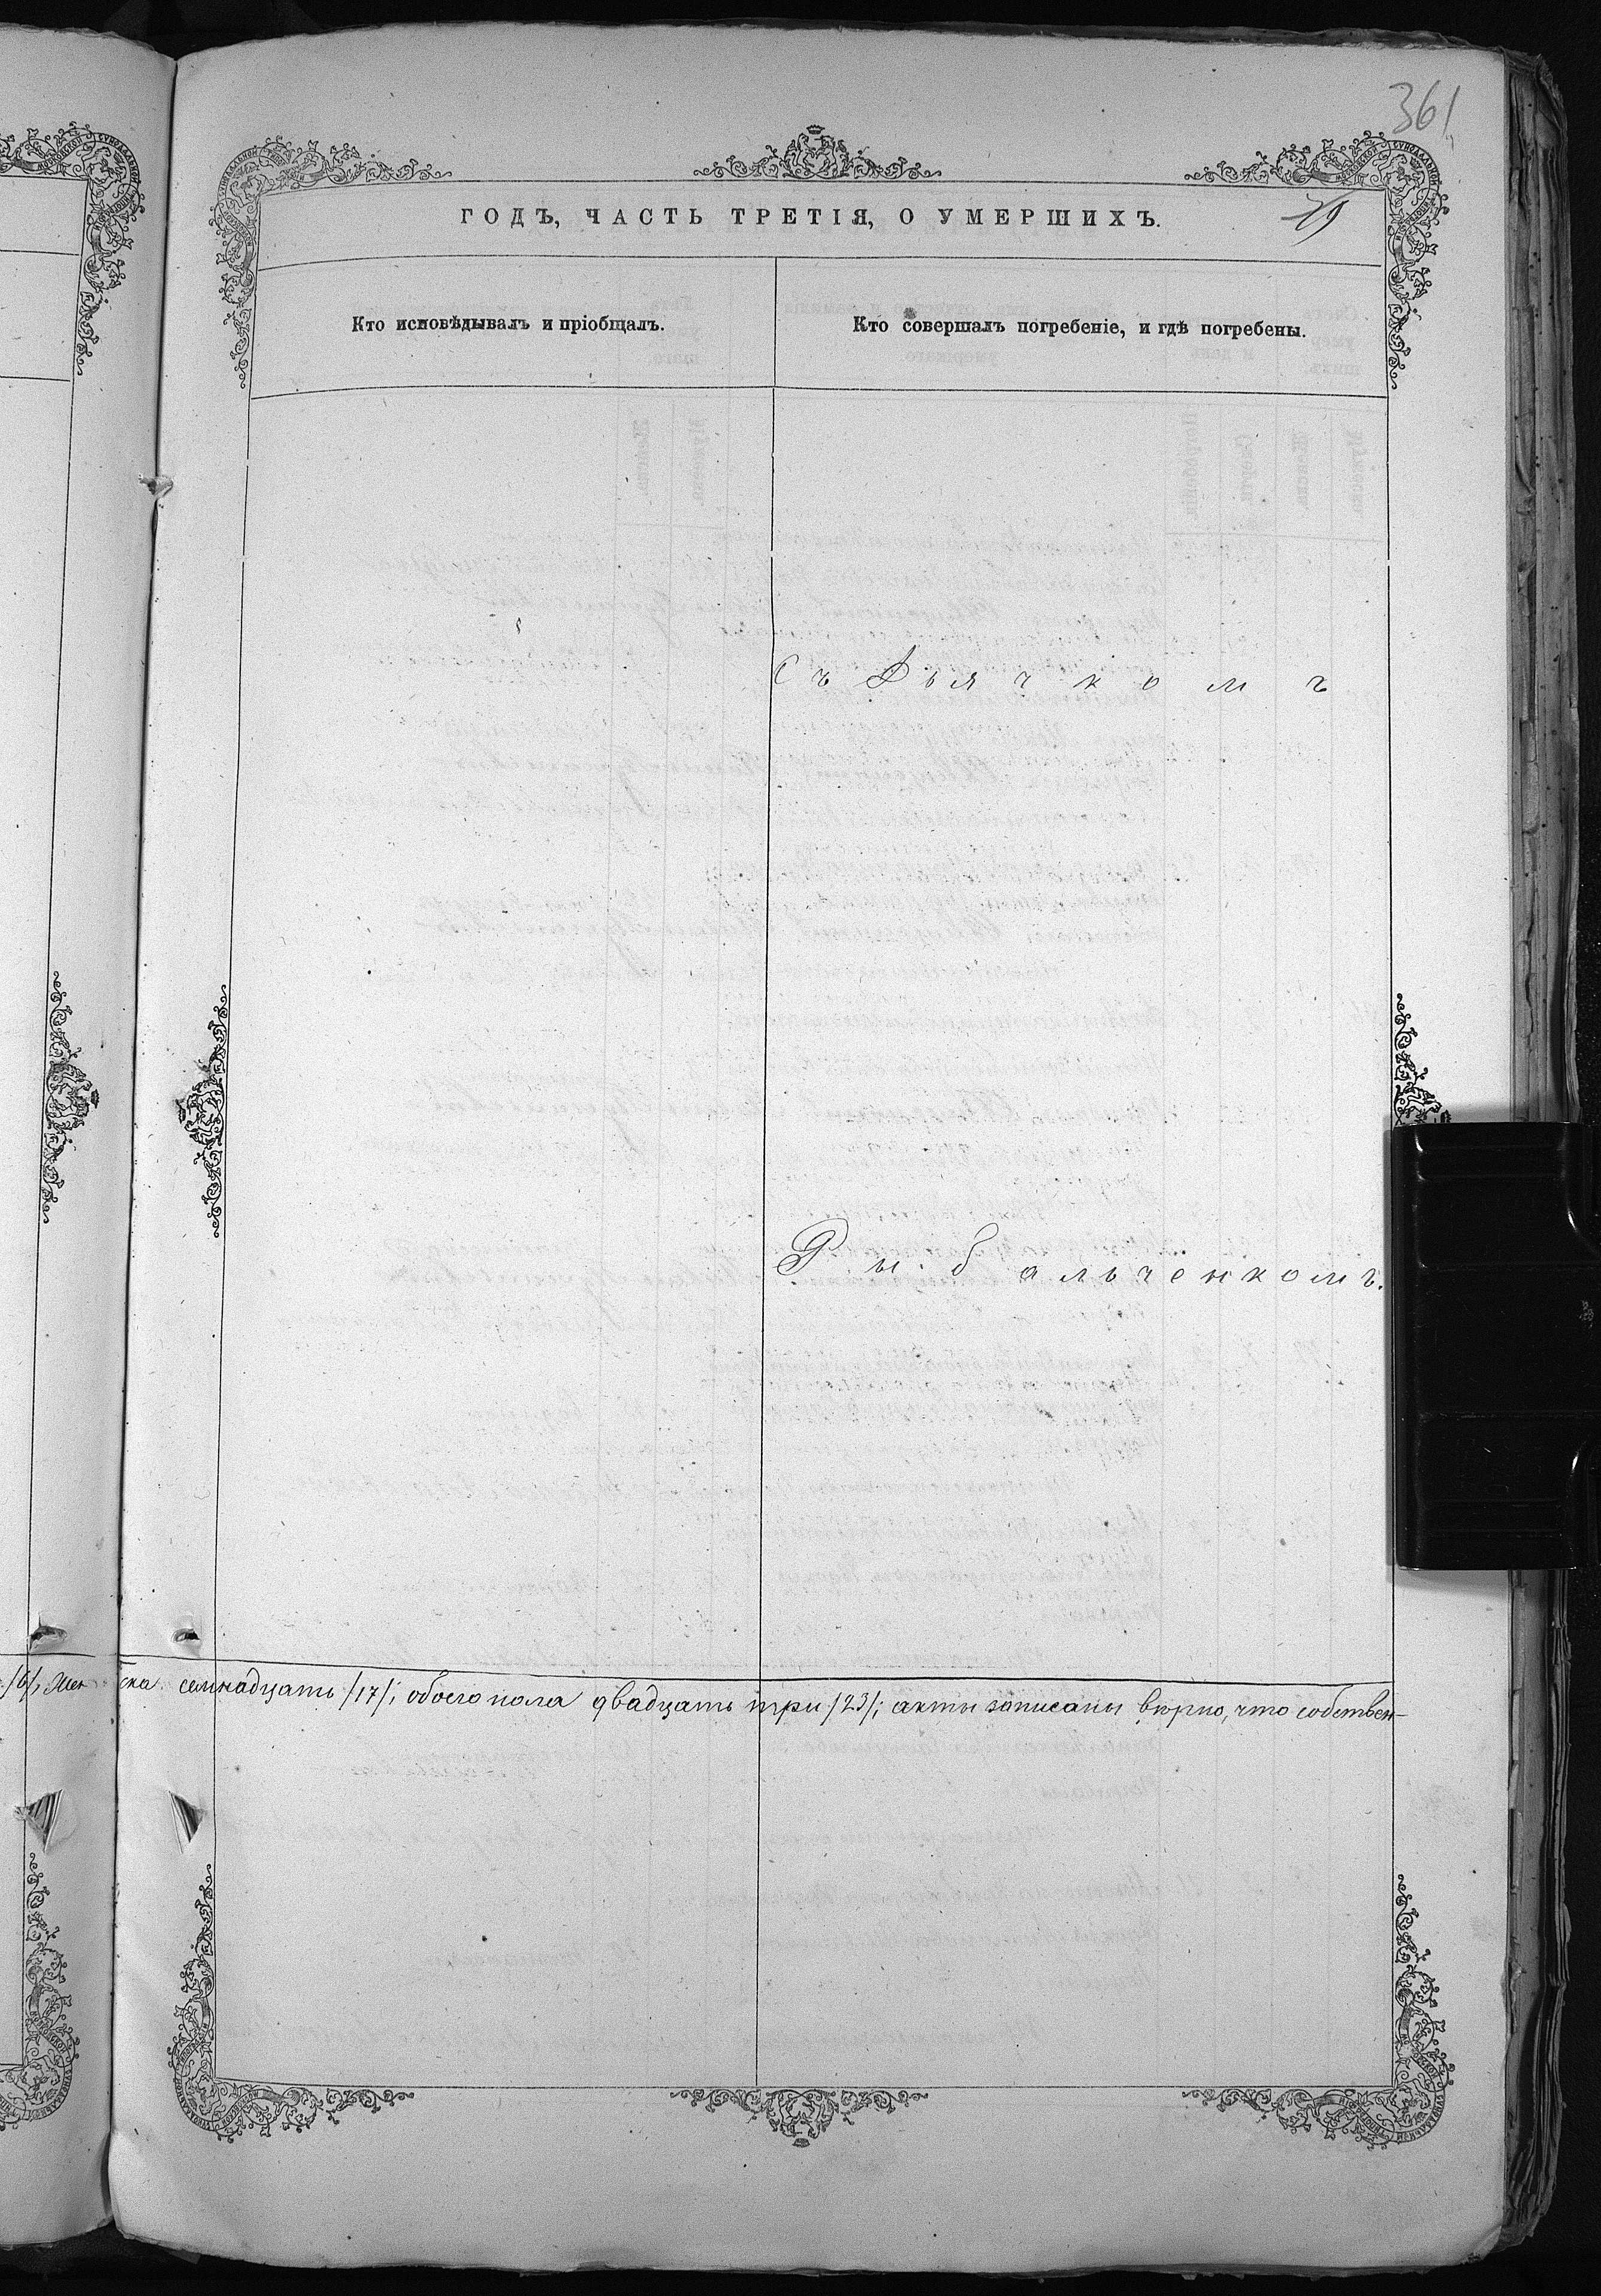 361
ГОДЪ, ЧАСТЬ ТРЕТІЯ, О УМЕРШИХЪ.
Кто исповѣдывалъ и пріобщалъ.
Кто совершалъ погребеніе, и гдѣ погребены.
Съ Дьячкомъ
Рыбальченкомъ.
/6/, Женска семнадцать /17/; обоего пола двадцать три /23/; акты записаны вѣрно, что собствен-